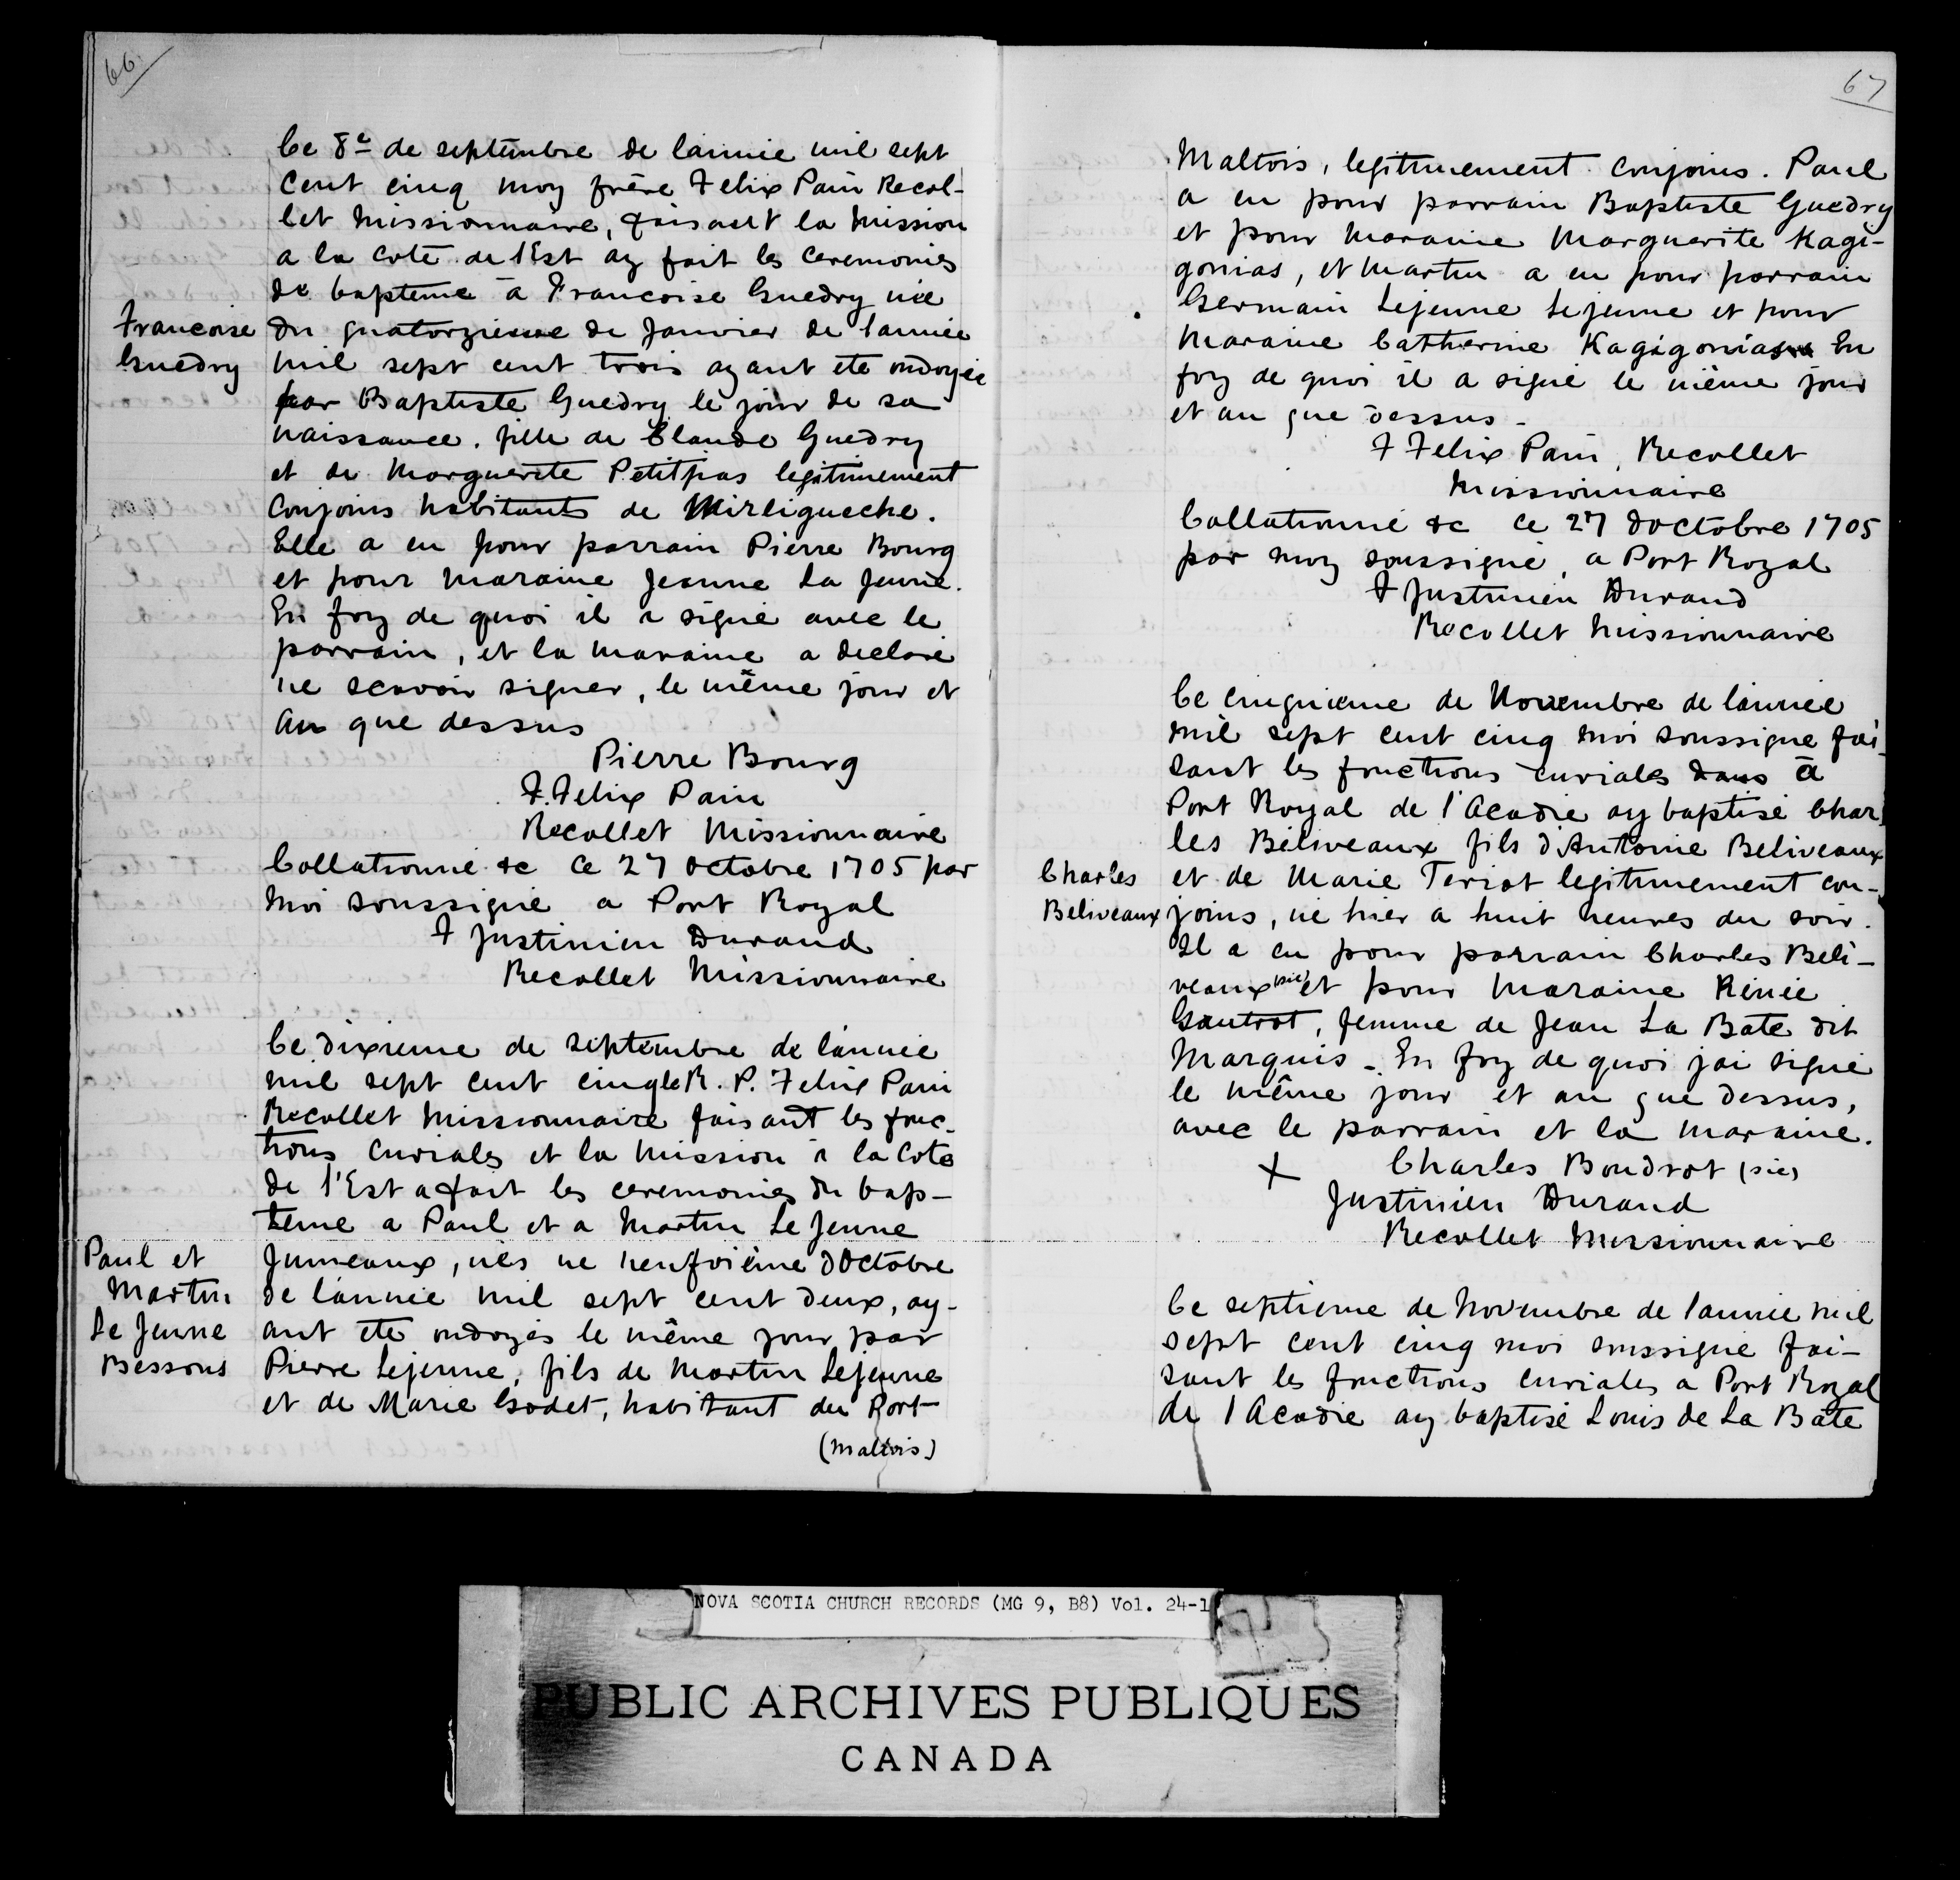 66.
Ce 8e de septembre de l'annie mil sept
Cent cinq moy frère Felix Pain Recol-
let Missionnaire, faisant la Mission
a la Cote de l'Est ay fait les ceremonies
de bapteme à Francoise Guedry née
Francoise
Guedry
du quatorzieme de Janvier de lannée
mil sept cent trois ayant ete ondoyée
par Baptiste Guedry le jour de sa
naissance. fille de Claude Guedry
et de Marguerite Petitpas legitimement
Conjoins habitants de Mirligueche.
Elle a eu pour parrain Pierre Bourg
et pour Maraine Jeanne La Jeune.
En foy de quoi il a signé avec le
parrain, et la Maraine a declaré
ne scavoir signer, le même jour et
an que dessus
Pierre Bourg
F. Felix Pain
Recollet Missionnaire
Collationné &c Ce 27 Octobre 1705 par
Moi soussigné a Port Royal
F Justinien Durand
Recollet Missionnaire
Ce dixieme de septembre de l'année
mil sept cent cinq le R. P. Felix Pain
Recollet Missionnaire faisant les fonc-
tions Curiales et la Mission à la Cote
de l'Est a fait les ceremonies du bap-
teme a Paul et a Martin Le Jeune
Paul et
Martin
Le Jeune
Bessons
Jumeaux, nés ne neufvième d'Octobre
de l'année mil sept cent deux, ay-
ant ete ondoyés le même jour par
Pierre Lejeune, fils de Martin Lejeune
et de Marie Godet, habitant du Port
(Maltois)
67
Maltois, legitimement conjoins. Paul
a eu pour parrain Baptiste Guedry
et pour Maraine Marguerite Kagi-
gonias, et Martin a eu pour parrain
Germain Lejeune Lejeune et pour
Maraine Catherine Kagigonias En
foy de quoi il a signé le même jour
et an que dessus -
F Felix Pain, Recollet
Missionnaire
Collationné &c Ce 27 d'Octobre 1705
par moy soussigné, a Port Royal
F Justinien Durand
Recollet Missionnaire
Ce cinquieme de Novembre de l'année
mil sept cent cinq moi soussigne fai-
sant les fonctions curiales dans à
Port Royal de l'Acadie ay baptisé Char
les Béliveaux fils d'Antoine Beliveaux
Charles
Beliveaux
et de Marie Teriot legitimement con-
joins, né hier a huit heures du soir.
Il a eu pour parrain Charles Beli-
veaux (sic) et pour Maraine Renée
Gautrot, femme de Jean La Bate dit
Marquis - En foy de quoi j'ai signé
le même jour et an que dessus,
avec le parrain et la maraine.
+ Charles Boudrot (sic)
Justinien Durand
Recollet Missionnaire
Ce septieme de Novembre de l'année mil
sept cent cinq moi soussigné fai-
sant les fonctions curiales a Port Royal
de l'Acadie ay baptisé Louis de La Bate
NOVA SCOTIA CHURCH RECORDS (MG 9, B8) Vol. 24-1
PUBLIC ARCHIVES PUBLIQUES
CANADA